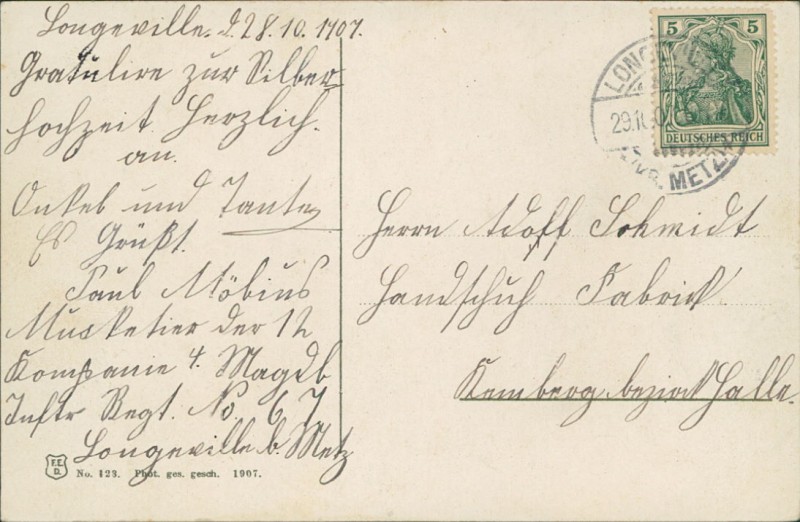 Longeville. d. 28.10.1907.
Gratulire zur Silber
hochzeit. Herzlich.
an.
Onkel und Tante
Es Grüßt.
Paul Möbius
Musketier der 12
Kompanie 4. Magdb
Inftr Regt. No. 67
Longeville b. Metz
F.E.D.
No. 123. Phot. ges. gesch. 1907.
5 5
DEUTSCHES REICH
29.10.0
METZ
Herrn Adolf Schmidt
Handschuh Fabrick
Kemberg bezirk Halle.